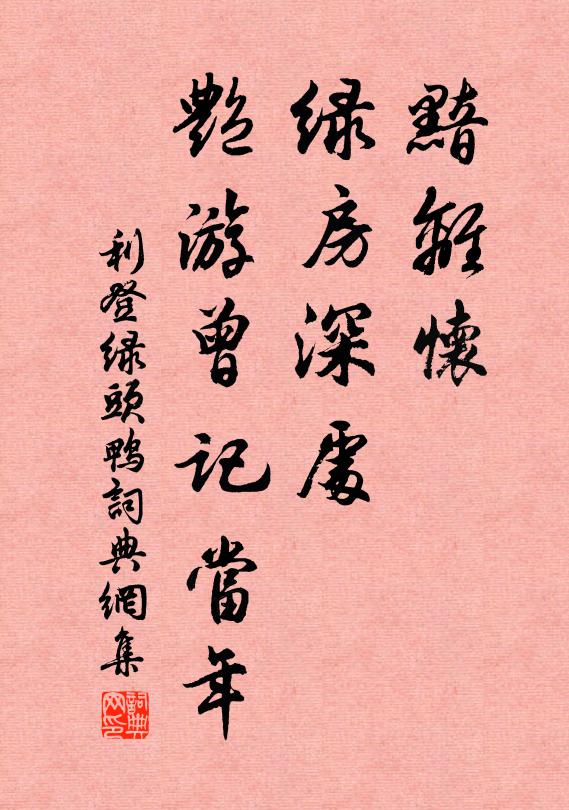 黯離懷
綠房深處
艷游曾記當年
利登綠頭鴨詞典網集
詞典网印